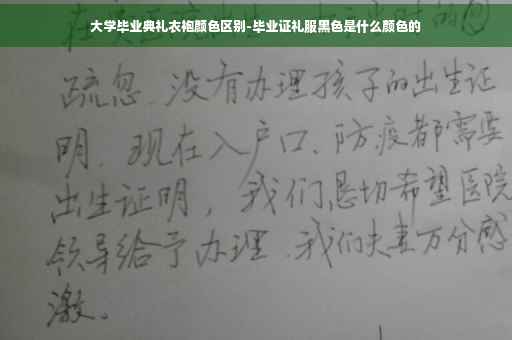 大学毕业典礼衣袍颜色区别-毕业证礼服黑色是什么颜色的
疏忽、没有办理孩子的出生证
明、现在入户口、防疫都需要
出生证明，我们恳切希望医院
领导给予办理、我们夫妻万分感
激。